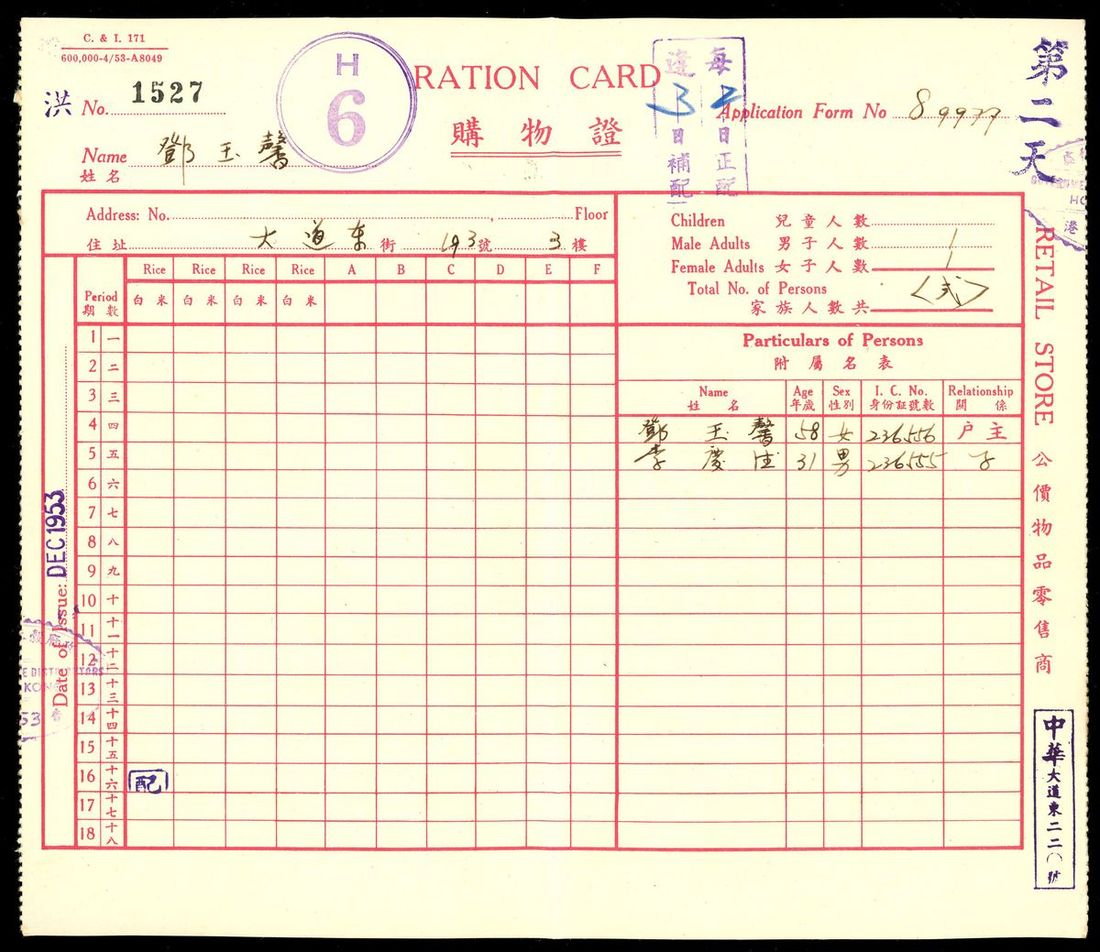 C. & I. 171
600,000-4/53-A8049
洪 No. 1527
H
6
RATION CARD
購物證
每2日正配
逢3日補配
Application Form No 89977
第二天
Name 鄧玉馨
姓名
Address: No. , Floor
住址 大道东 街 193 號 3 樓
Children 兒童人數
Male Adults 男子人數 1
Female Adults 女子人數
Total No. of Persons
家族人數共 〈弍〉
Period Rice Rice Rice Rice A B C D E F
期數 白米 白米 白米 白米
1 一
2 二
3 三
4 四
5 五
6 六
7 七
8 八
9 九
10 十
11 十一
12 十二
13 十三
14 十四
15 十五
16 十六 配
17 十七
18 十八
Particulars of Persons
附屬名表
Name Age Sex I. C. No. Relationship
姓名 年歲 性別 身份証號數 關係
鄧玉馨 58 女 236556 户主
李慶 31 男 236555 子
Date of Issue: DEC 1953
RETAIL STORE 公價物品零售商
中華 大道東二二〇號